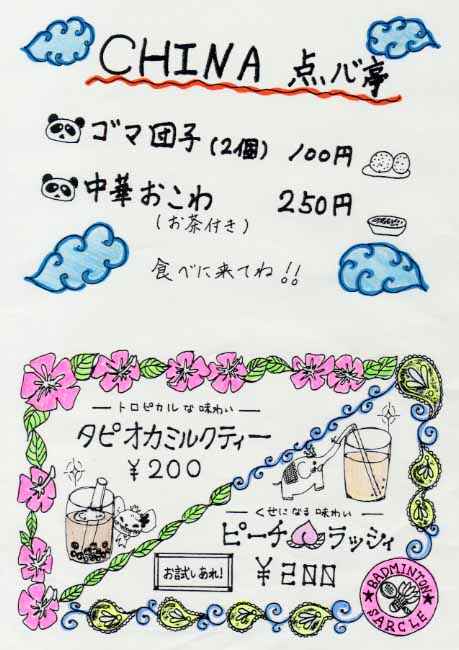 CHINA 点心亭
ゴマ団子(2個) 100円
中華おこわ 250円
(お茶付き)
食べに来てね!!
トロピカルな味わい
タピオカミルクティー
¥200
くせになる味わい
ピーチラッシィ
¥200
お試しあれ!
BADMINTON SARCLE